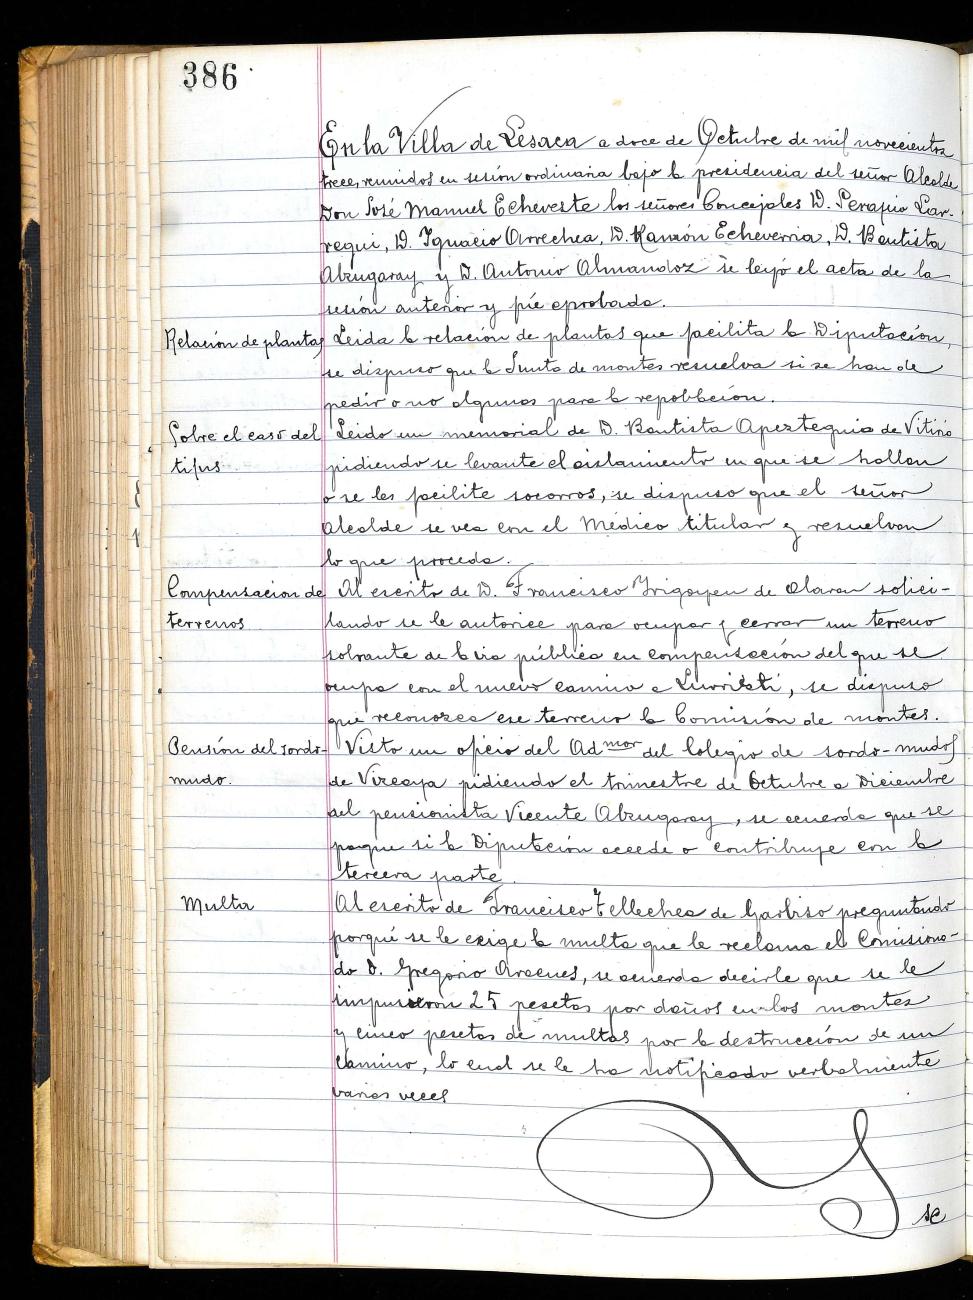 386
En la Villa de Lesaca a doce de Octubre de mil novecientos
trece, reunidos en sesión ordinaria bajo la presidencia del señor Alcalde
Don José Manuel Echeveste los señores Concejales D. Serapio Liar-
regui, D. Ignacio Arrechea, D. Ramón Echeverria, D. Bautista
Alzugaray y D. Antonio Almandoz se leyó el acta de la
sesión anterior y fué aprobada.
Relación de plantas
Leida la relación de plantas que facilita la Diputación,
se dispuso que la Junta de montes resuelva si se han de
pedir o no algunas para la repoblación.
Sobre el caso del
tifus
Leido un memorial de D. Bautista Apeztequia de
pidiendo se levante el aislamiento en que se hallan
o se les facilite socorros, se dispuso que el señor
Alcalde se vea con el Médico titular y resuelvan
lo que proceda.
Compensacion de
terrenos
Al escrito de D. Francisco Irigoyen de Olaran solici-
tando se le autorice para ocupar y cerrar un terreno
sobrante de la via pública en compensación del que se
ocupa con el nuevo camino a , se dispuso
que reconozca ese terreno la Comisión de montes.
Pensión del sordo-
mudo.
Visto un oficio del Admor del Colegio de sordo-mudos
de Vizcaya pidiendo el trimestre de Octubre a Diciembre
del pensionista Vicente Alzugaray, se acuerda que se
pague si la Diputación accede a contribuye con la
tercera parte.
Multa
Al escrito de Francisco Tellechea de Garbiso preguntando
porqué se le exige la multa que le reclama el Comisiona-
do D. Gregorio Aracues, se acuerda decirle que se le
impusieron 25 pesetas por daños en los montes
y cinco pesetas de multas por la destrucción de un
camino, lo cual se le ha notificado verbalmente
varias veces
se